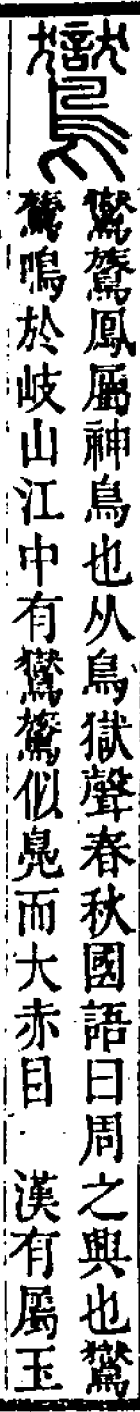 鸑
鸑鷟鳳屬神鳥也从鳥獄聲春秋國語曰周之興也鸑
鷟鳴於岐山江中有鸑鷟似鳧而大赤目 漢有屬玉